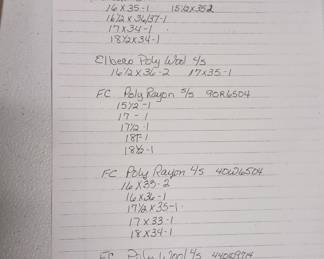 16 x 35-1 15½ x 35 2
16½ x 36/37-1
17 x 34-1
18½ x 34-1
Elbeco Poly Wool L/s
16½ x 36-2 17 x 35-1
FC Poly Rayon S/s 90R6504
15½-1
17-1
17½-1
18T-1
18½-1
FC Poly Rayon L/s 40W6504
16 x 33-2
16 x 36-1
17½ x 35-1
17 x 33-1
18 x 34-1
FC Poly Wool L/s